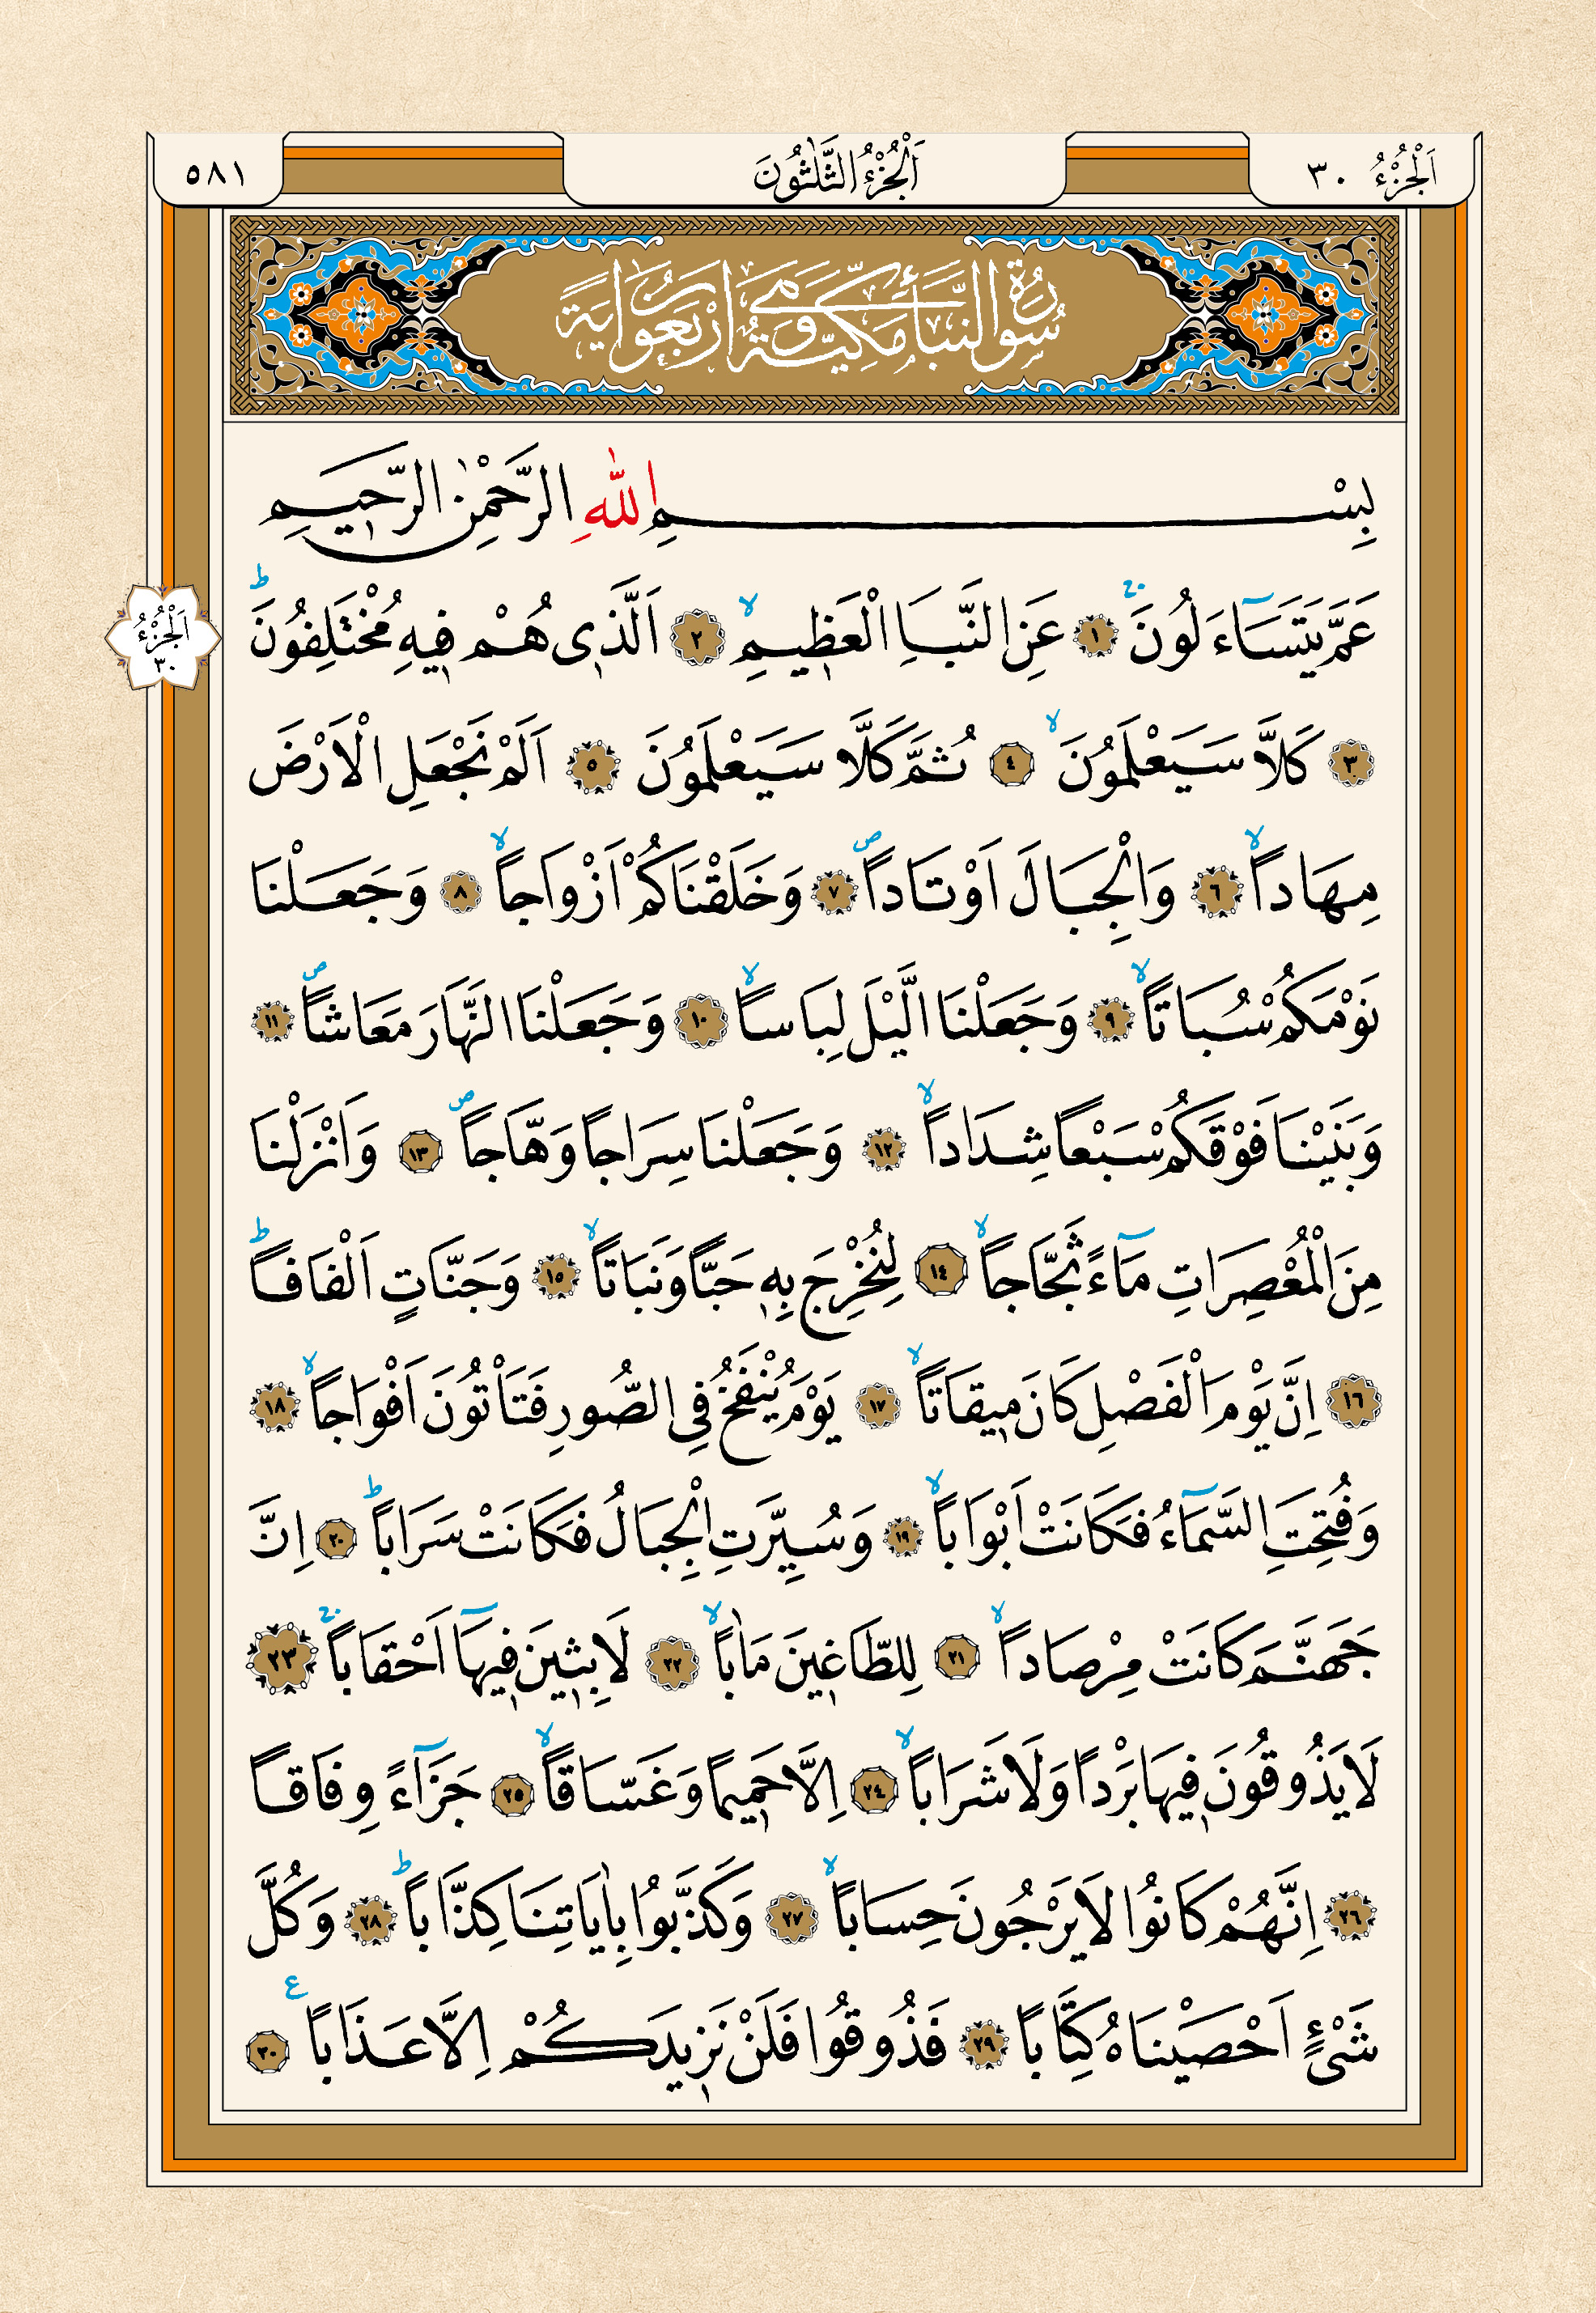 اَلْجُزْءُ ٣٠
اَلْجُزْءُ الثَّلٰثُونَ
٥٨١
سُورَةُ النَّبَأِ مَكِّيَّةٌ وَهِيَ اَرْبَعُونَ اٰيَةً
بِسْمِ اللّٰهِ الرَّحْمٰنِ الرَّحٖيمِ
عَمَّ يَتَسَٓاءَلُونَۚ ١ عَنِ النَّبَاِ الْعَظٖيمِۙ ٢ اَلَّذٖى هُمْ فٖيهِ مُخْتَلِفُونَؕ
اَلْجُزْءُ ٣٠
٣ كَلَّا سَيَعْلَمُونَۙ ٤ ثُمَّ كَلَّا سَيَعْلَمُونَ ٥ اَلَمْ نَجْعَلِ الْاَرْضَ
مِهَاداًۙ ٦ وَالْجِبَالَ اَوْتَاداًۖ ٧ وَخَلَقْنَاكُمْ اَزْوَاجاًۙ ٨ وَجَعَلْنَا
نَوْمَكُمْ سُبَاتاًۙ ٩ وَجَعَلْنَا الَّيْلَ لِبَاساًۙ ١٠ وَجَعَلْنَا النَّهَارَ مَعَاشاًۖ ١١
وَبَنَيْنَا فَوْقَكُمْ سَبْعاً شِدَاداًۙ ١٢ وَجَعَلْنَا سِرَاجاً وَهَّاجاًۖ ١٣ وَاَنْزَلْنَا
مِنَ الْمُعْصِرَاتِ مَٓاءً ثَجَّاجاًۙ ١٤ لِنُخْرِجَ بِهٖ حَباًّ وَنَبَاتاًۙ ١٥ وَجَنَّاتٍ اَلْفَافاًؕ
١٦ اِنَّ يَوْمَ الْفَصْلِ كَانَ مٖيقَاتاًۙ ١٧ يَوْمَ يُنْفَخُ فِى الصُّورِ فَتَأْتُونَ اَفْوَاجاًۙ ١٨
وَفُتِحَتِ السَّمَٓاءُ فَكَانَتْ اَبْوَاباًۙ ١٩ وَسُيِّرَتِ الْجِبَالُ فَكَانَتْ سَرَاباًؕ ٢٠ اِنَّ
جَهَنَّمَ كَانَتْ مِرْصَاداًۙ ٢١ لِلطَّاغٖينَ مَاٰباًۙ ٢٢ لَابِثٖينَ فٖيهَٓا اَحْقَاباًۚ ٢٣
لَا يَذُوقُونَ فٖيهَا بَرْداً وَلَا شَرَاباًۙ ٢٤ اِلَّا حَمٖيماً وَغَسَّاقاًۙ ٢٥ جَزَٓاءً وِفَاقاً
٢٦ اِنَّهُمْ كَانُوا لَا يَرْجُونَ حِسَاباًۙ ٢٧ وَكَذَّبُوا بِاٰيَاتِنَا كِذَّاباًؕ ٢٨ وَكُلَّ
شَیْءٍ اَحْصَيْنَاهُ كِتَاباً ٢٩ فَذُوقُوا فَلَنْ نَزٖيدَكُمْ اِلَّا عَذَاباً ع ٣٠